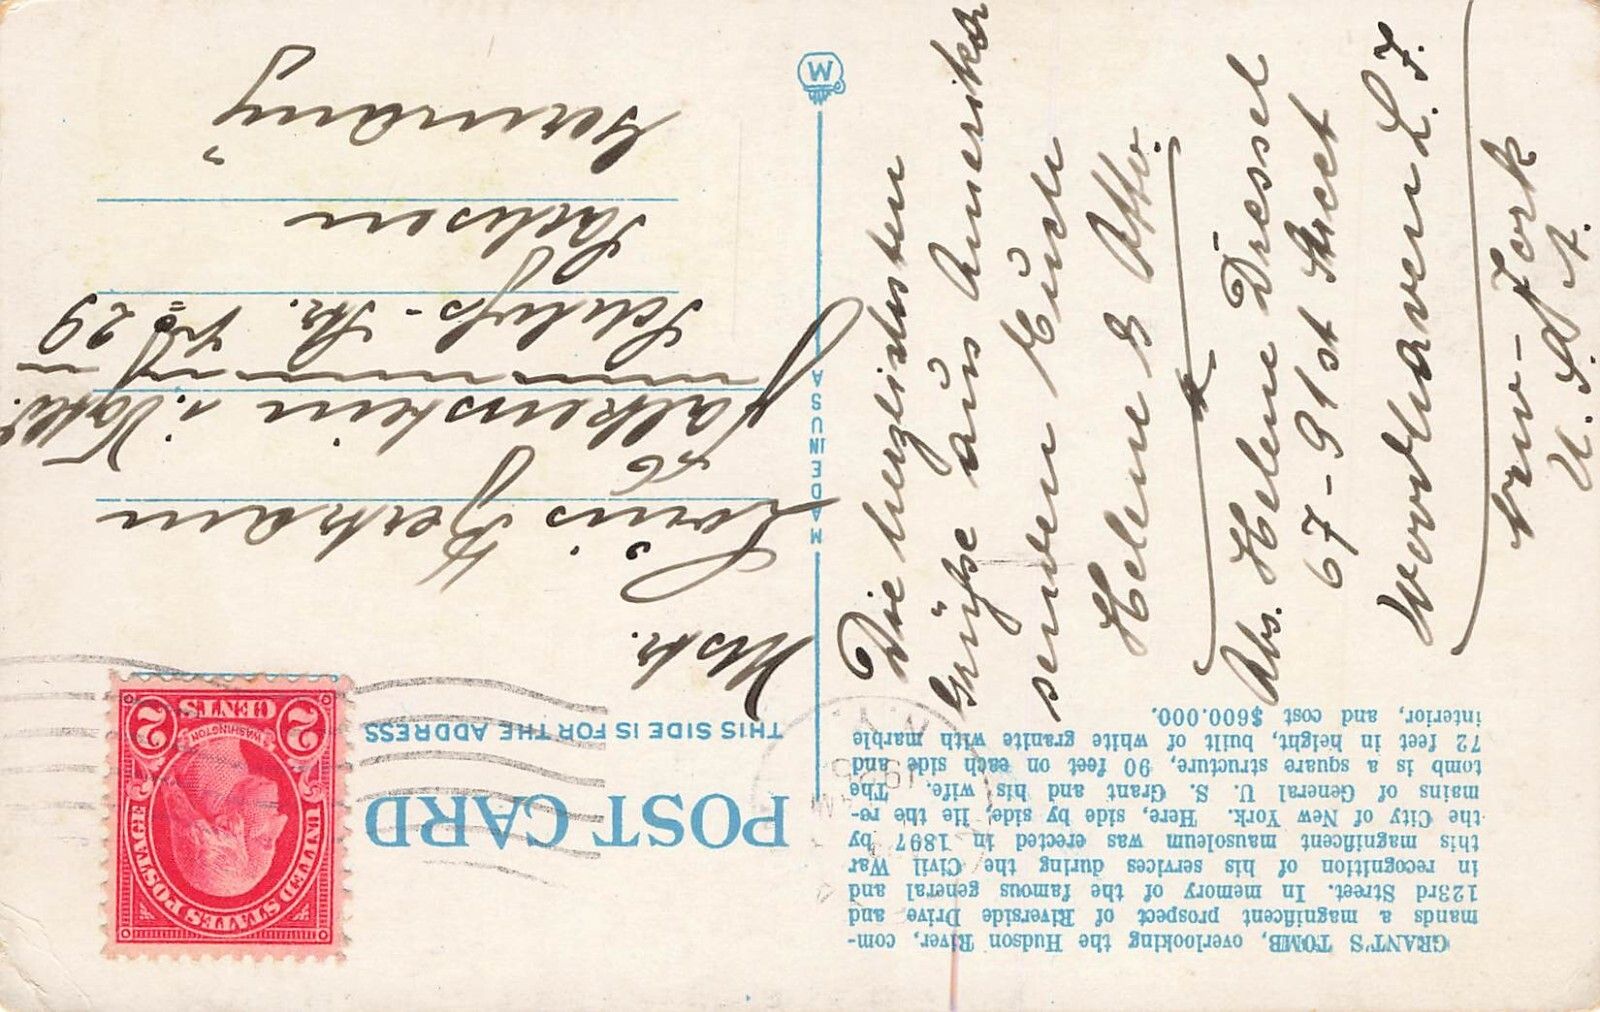 GRANT'S TOMB, overlooking the Hudson River, com-
mands a magnificent prospect of Riverside Drive and
123rd Street. In memory of the famous general and
in recognition of his services during the Civil War
this magnificent mausoleum was erected in 1897 by
the City of New York. Here, side by side, lie the re-
mains of General U. S. Grant and his wife. The
tomb is a square structure, 90 feet on each side and
72 feet in height, built of white granite with marble
interior, and cost $600.000.
Die herzlichsten
Grüße aus Amerika
senden Euch
Helene & Otto.
Abs. Helene Dressel
67-91st Street
Woodhaven L. I.
New-York
U.S.A.
POST CARD
THIS SIDE IS FOR THE ADDRESS
UNITED STATES POSTAGE
WASHINGTON
2 CENTS 2
N.Y.
MADE IN USA
W
Mstr.
Louis Bertram
Falkenstein i. Vogtl.
Schulstr. No 29
Sachsen
Germany